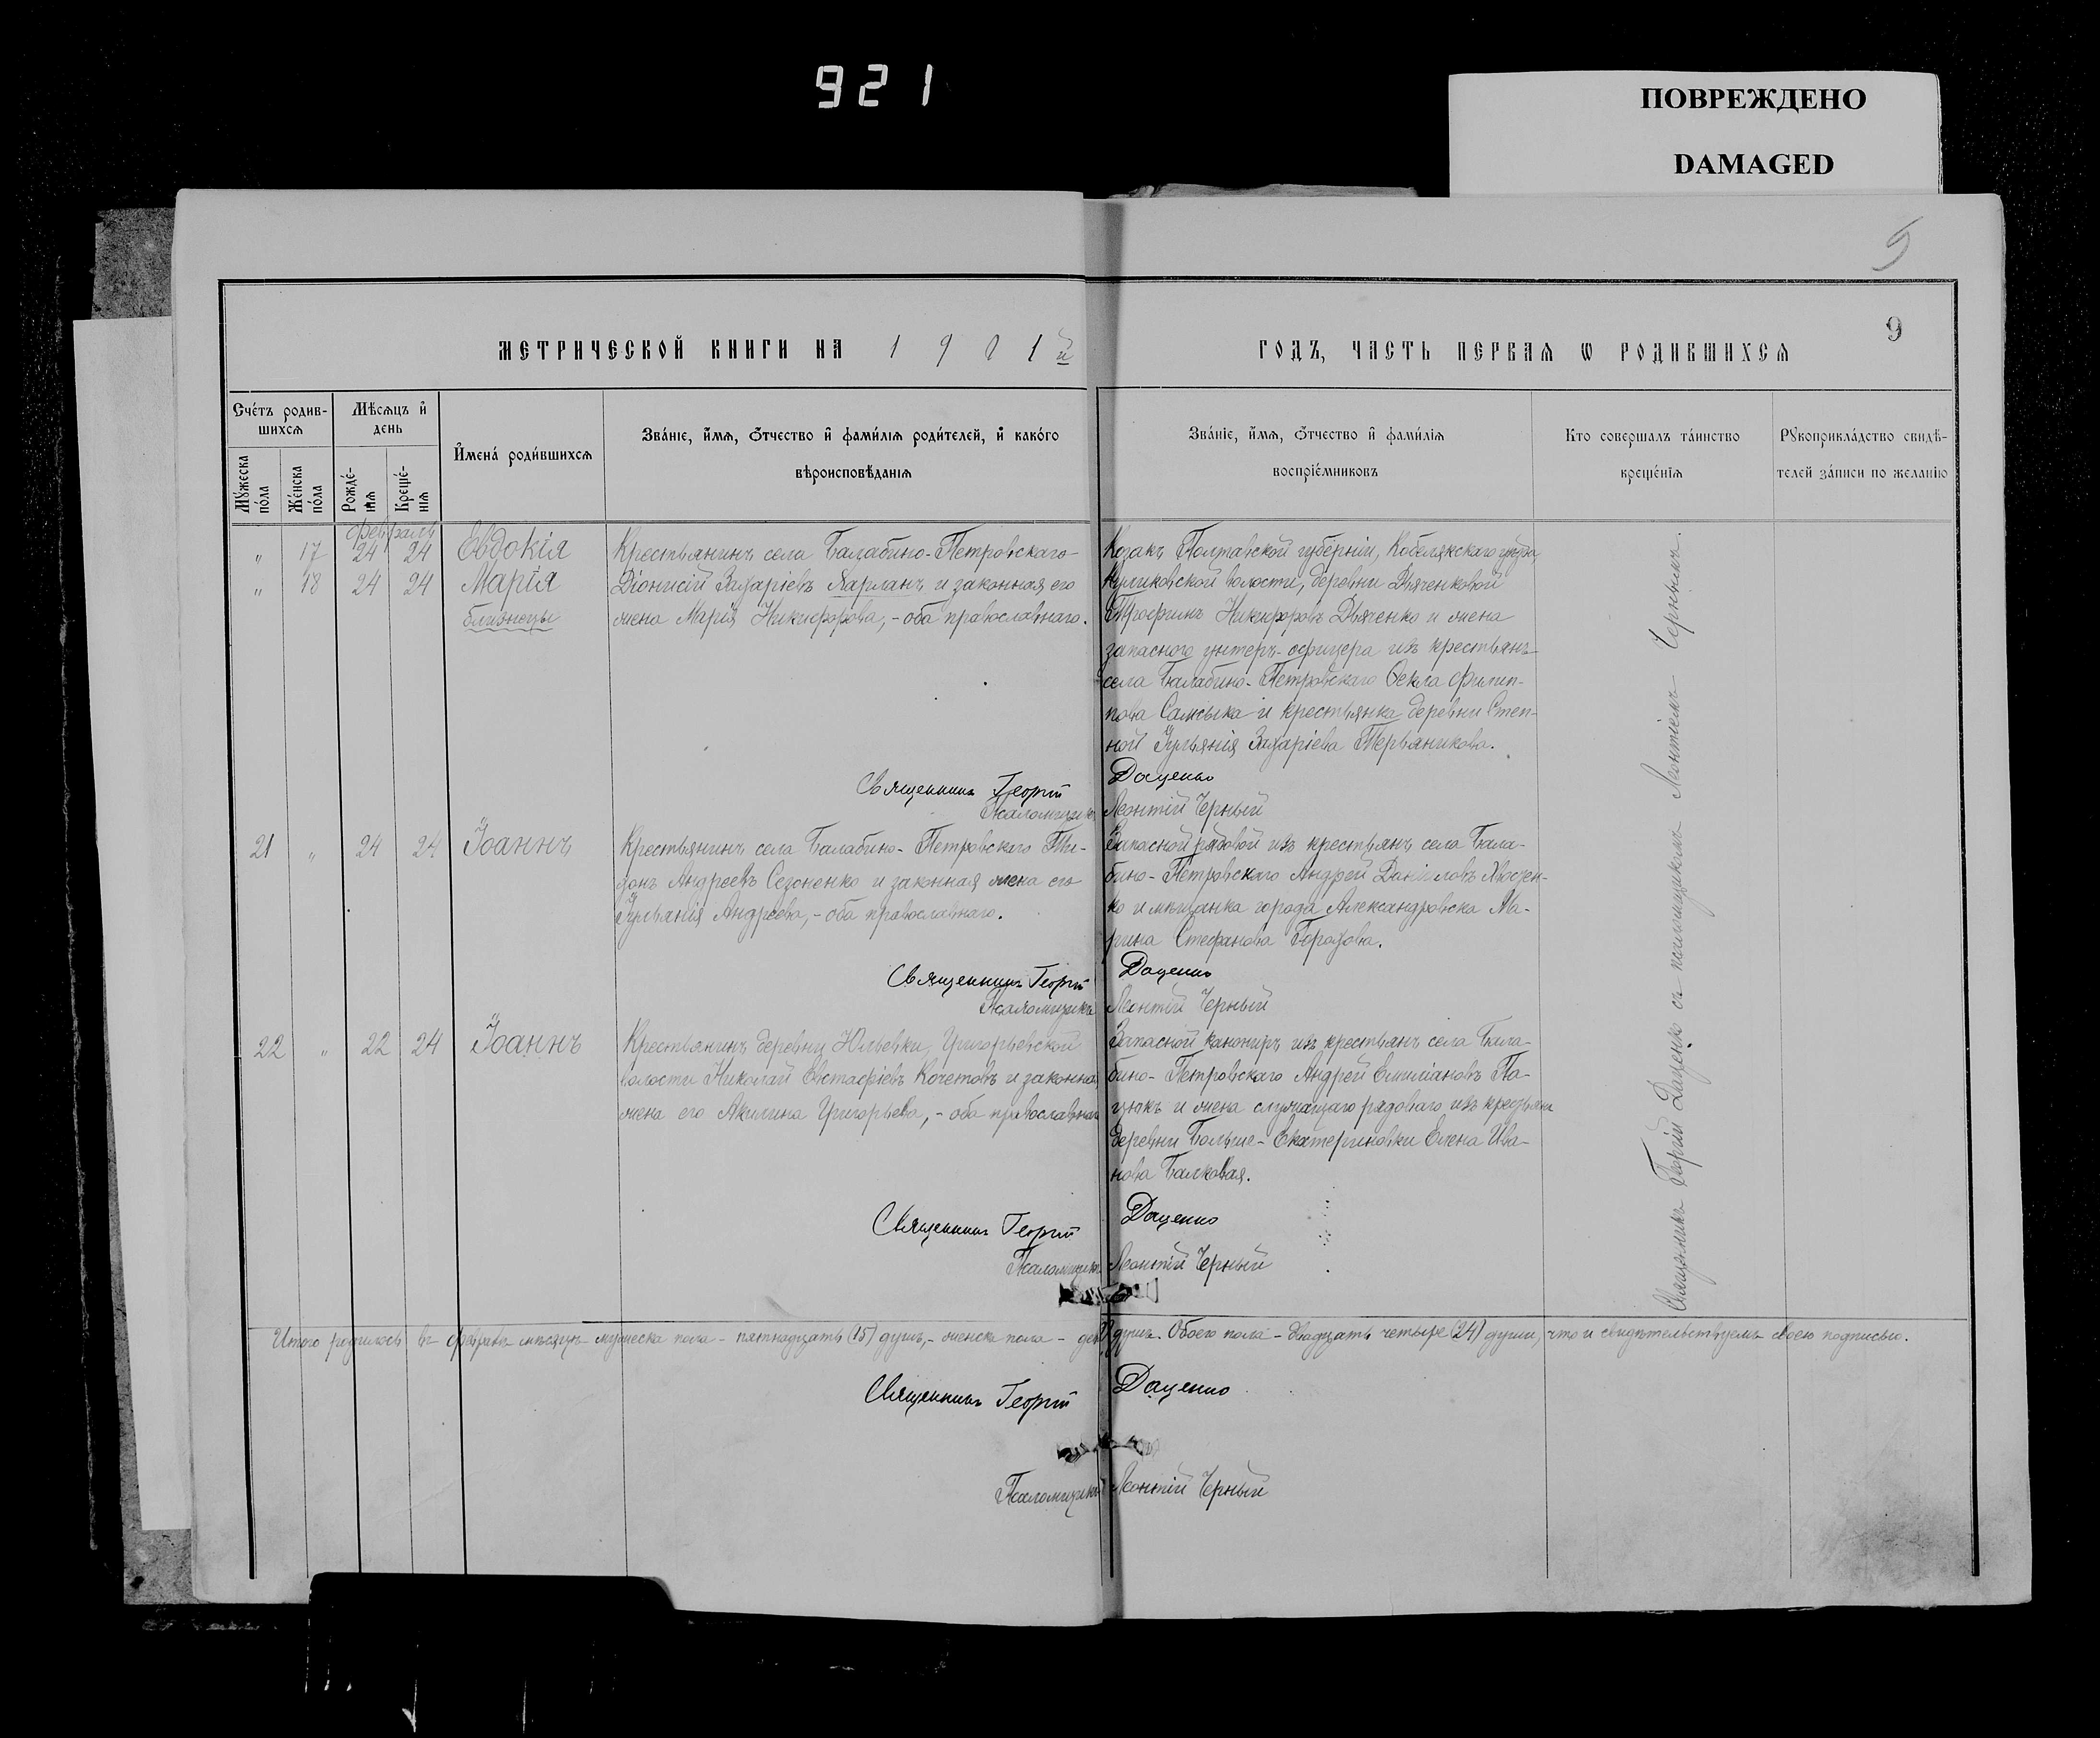 921
ПОВРЕЖДЕНО
DAMAGED
9
9
МЕТРИЧЕСКОЙ КНИГИ НА 1901й
ГОДЪ, ЧАСТЬ ПЕРВАЯ Ѡ РОДИВШИХСЯ
Счетъ родив-
шихся
Мѣсяцъ и
день
Имена родившихся
Званіе, имя, отчество и фамилія родителей, и какого
вѣроисповѣданія
Мужеска
пола
Женска
пола
Рожде-
нія
Креще-
нія
Званіе, имя, отчество и фамилія
воспріемниковъ
Кто совершалъ таинство
крещенія
Рукоприкладство свидѣ-
телей записи по желанію
Февраль
" 17 24 24 Евдокія Крестьянинъ села Балабино-Петровскаго-
" 18 24 24 Марія Діонисій Захаріевъ Харланъ и законная его
близнецы жена Марія Никифорова, - оба православнаго.
Козакъ Полтавской губерніи, Кобелякскаго уѣзда,
волости, деревни Дьяченковой
Трофимъ Никифоровъ Дьяченко и жена
запасного унтеръ-офицера изъ крестьянъ
села Балабино-Петровскаго Ѳекла Филип-
пова и крестьянка деревни Степ-
ной Іуліанія Захаріева
Священникъ Георгій Даценко
Псаломщикъ Леонтій Черный
21 " 24 24 Іоаннъ Крестьянинъ села Балабино-Петровскаго Ти-
донъ Андреевъ Сезоненко и законная жена его
Іуліанія Андреева, - оба православнаго.
Запасной рядовой изъ крестьянъ села Бала-
бино-Петровскаго Андрей Даніиловъ
ко и мѣщанка города Александровска Ма-
рина Стефанова
Священникъ Георгій Даценко
Псаломщикъ Леонтій Черный
22 " 22 24 Іоаннъ Крестьянинъ деревни Юльевки, Григорьевской
волости Николай Евстафіевъ Кочетовъ и законная
жена его Акилина Григорьева, - оба православнаго
Запасной канониръ изъ крестьянъ села Бала-
бино-Петровскаго Андрей Емиліановъ Па-
цюкъ и жена служащаго рядового изъ крестьянъ
деревни Больше-Екатериновки Елена Ива-
нова Балковая.
Священникъ Георгій Даценко
Псаломщикъ Леонтій Черный
Священникъ Георгій Даценко съ псаломщикомъ Леонтіемъ Чернымъ.
Итого родилось въ Февралѣ мѣсяцѣ мужеска пола - пятнадцать (15) душъ, - женска пола - душъ. Обоего пола - двадцать четыре (24) души, что и свидѣтельствуемъ своею подписью.
Священникъ Георгій Даценко
Псаломщикъ Леонтій Черный